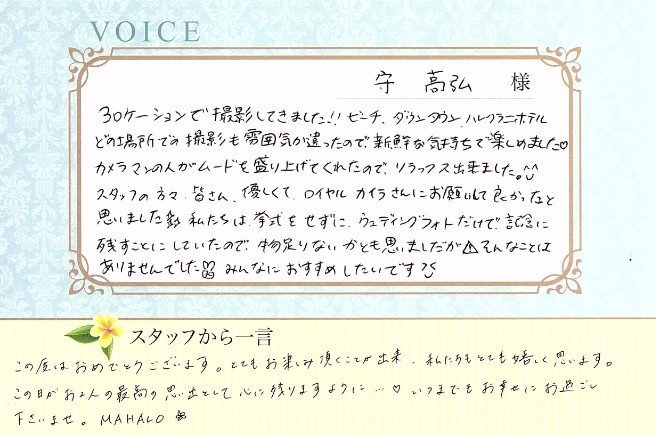 VOICE
守 高弘 様
3ロケーションで撮影してきました!! ビーチ、ダウンタウン、ハレクラニホテル
どの場所での撮影も雰囲気が違ったので新鮮な気持ちで楽しめました♡
カメラマンの人がムードを盛り上げてくれたので、リラックス出来ました。^^
スタッフの方々、皆さん、優しくて、ロイヤル カイラさんにお願いして良かったなと
思いました 私たちは、挙式をせずに、ウェディングフォトだけで、記念に
残すことにしていたので、物足りないかとも思いましたが そんなことは
ありませんでした みんなにおすすめしたいです
スタッフから一言
この度はおめでとうございます。とてもお楽しみ頂くことが出来、私たちもとても嬉しく思います。
この日がお2人の最高の思い出として心に残りますように…♡ いつまでもお幸せにお過ごし
下さいませ。MAHALO